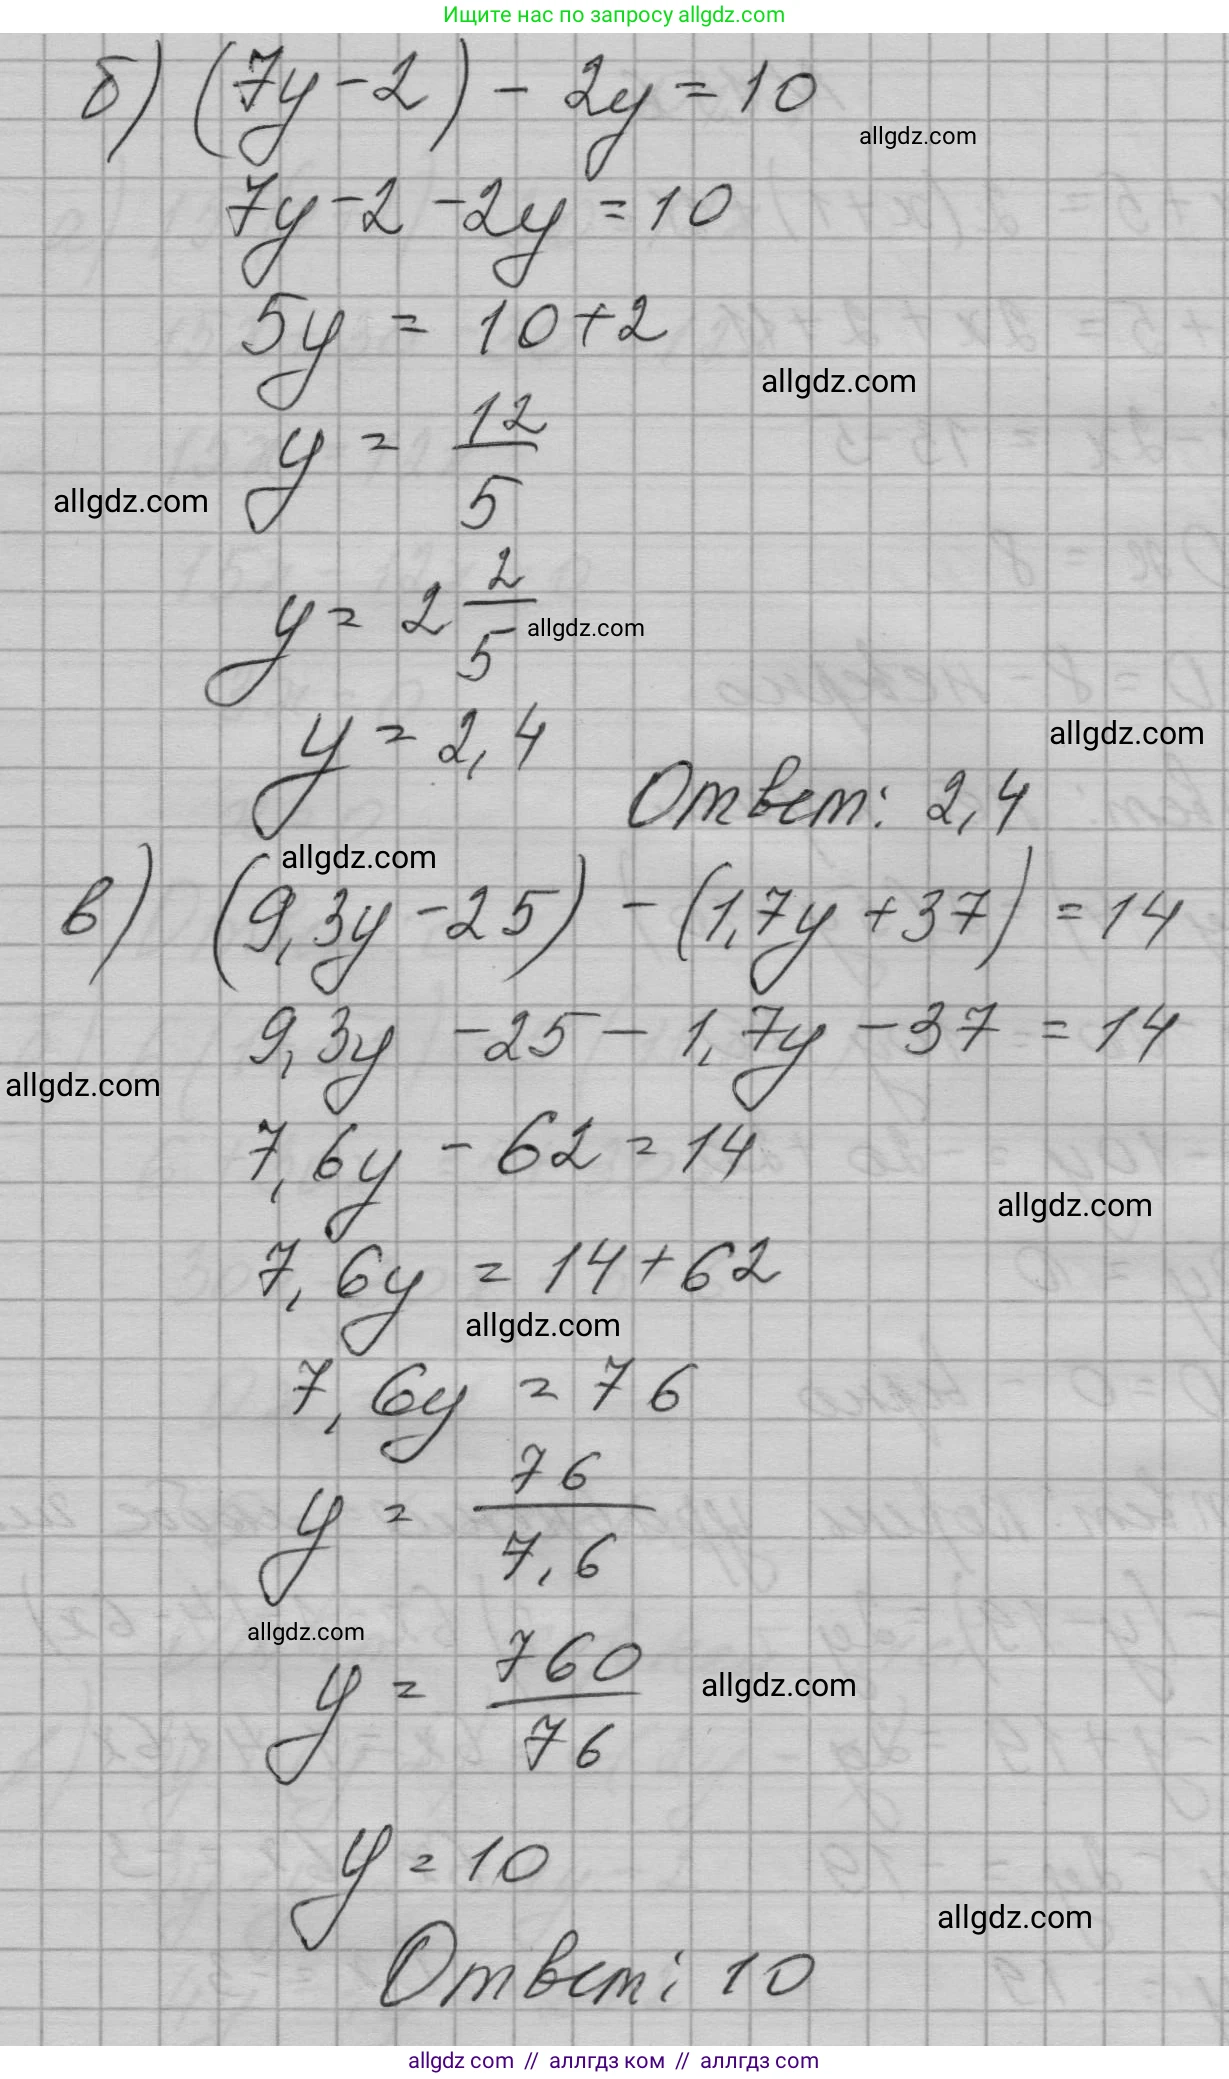 Ищите нас по запросу allgdz.com
б) (7y - 2) - 2y = 10
allgdz.com
7y - 2 - 2y = 10
5y = 10 + 2
allgdz.com
y = 12/5
allgdz.com
y = 2 2/5
allgdz.com
y = 2,4
allgdz.com
Ответ: 2,4
allgdz.com
в) (9,3y - 25) - (1,7y + 37) = 14
9,3y - 25 - 1,7y - 37 = 14
allgdz.com
7,6y - 62 = 14
allgdz.com
7,6y = 14 + 62
allgdz.com
7,6y = 76
y = 76/7,6
allgdz.com
y = 760/76
allgdz.com
y = 10
allgdz.com
Ответ: 10
allgdz com // аллгдз ком // аллгдз com